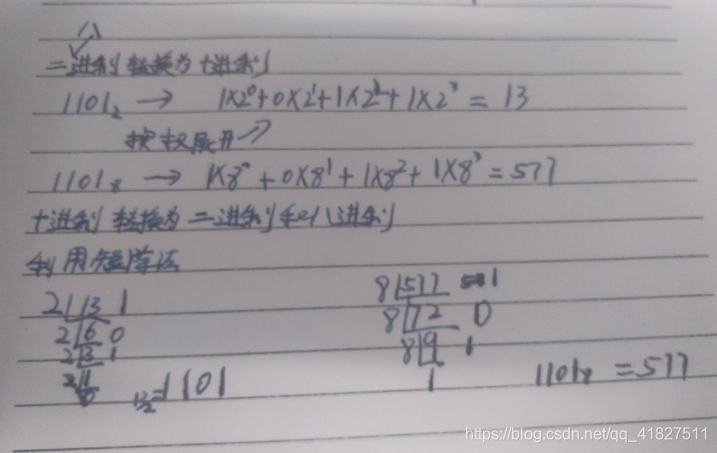 八
二进制转换为十进制
1101₂ → 1×2⁰+0×2¹+1×2²+1×2³=13
按权展开
1101₈ → 1×8⁰+0×8¹+1×8²+1×8³=577
十进制转换为二进制和八进制
利用短除法
2 13 1
2 6 0
2 3 1
2 1
0
1101
8 577 1
8 72 0
8 9 1
1
1101₈ =577
https://blog.csdn.net/qq_41827511